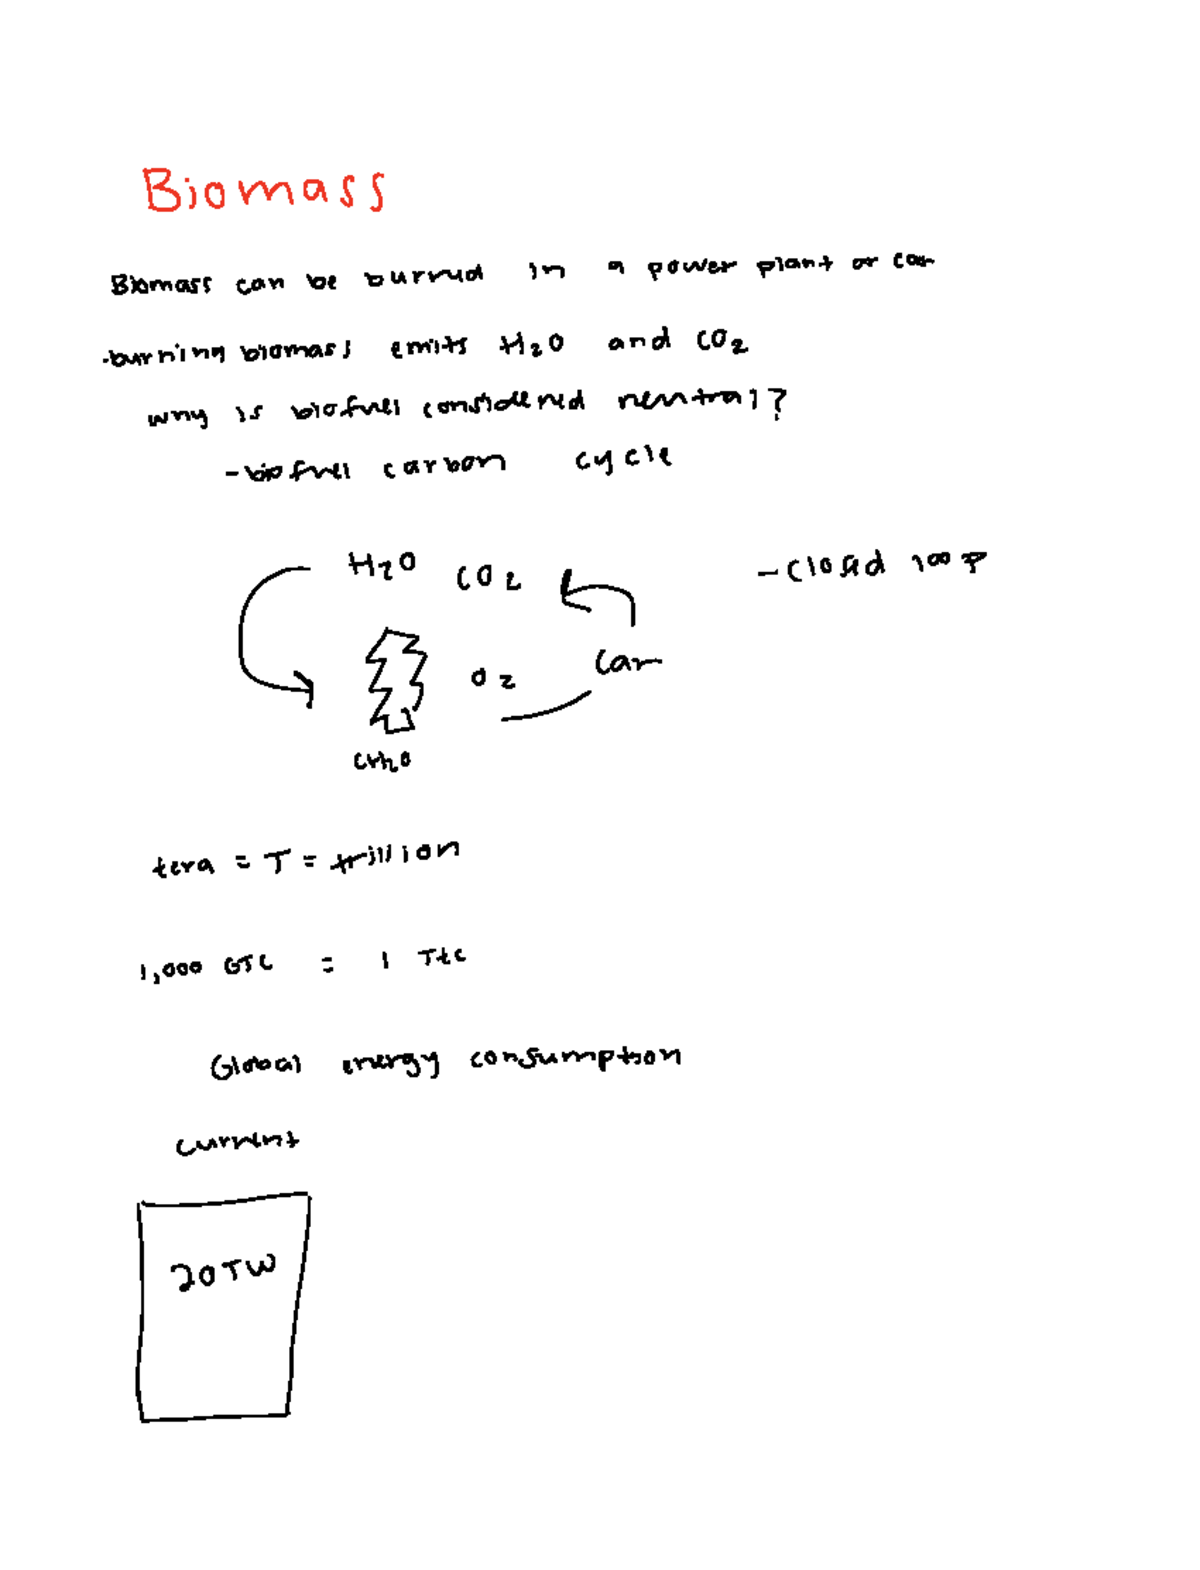 Biomass
Biomass can be burned in a power plant or car
-burning biomass emits H₂O and CO₂
why is biofuel considered neutral?
-biofuel carbon cycle
H₂O CO₂ -closed loop
O₂ Car
CH₂O
tera = T = trillion
1,000 GTC = 1 Ttc
Global energy consumption
current
20TW